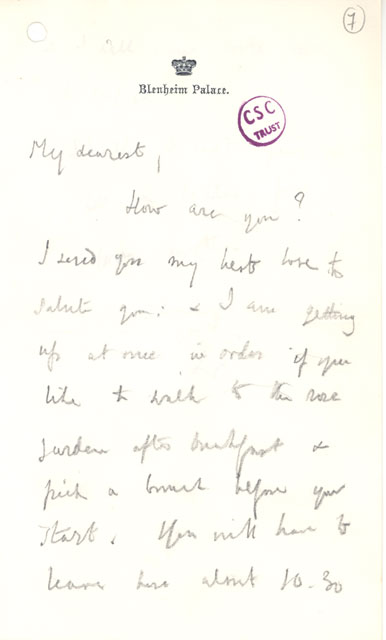 7
Blenheim Palace.
CSC
TRUST
My dearest,
How are you?
I send you my best love to
salute you: & I am getting
up at once in order if you
like to walk to the rose
garden after breakfast &
pick a bunch before you
start. You will have to
leave here about 10-30